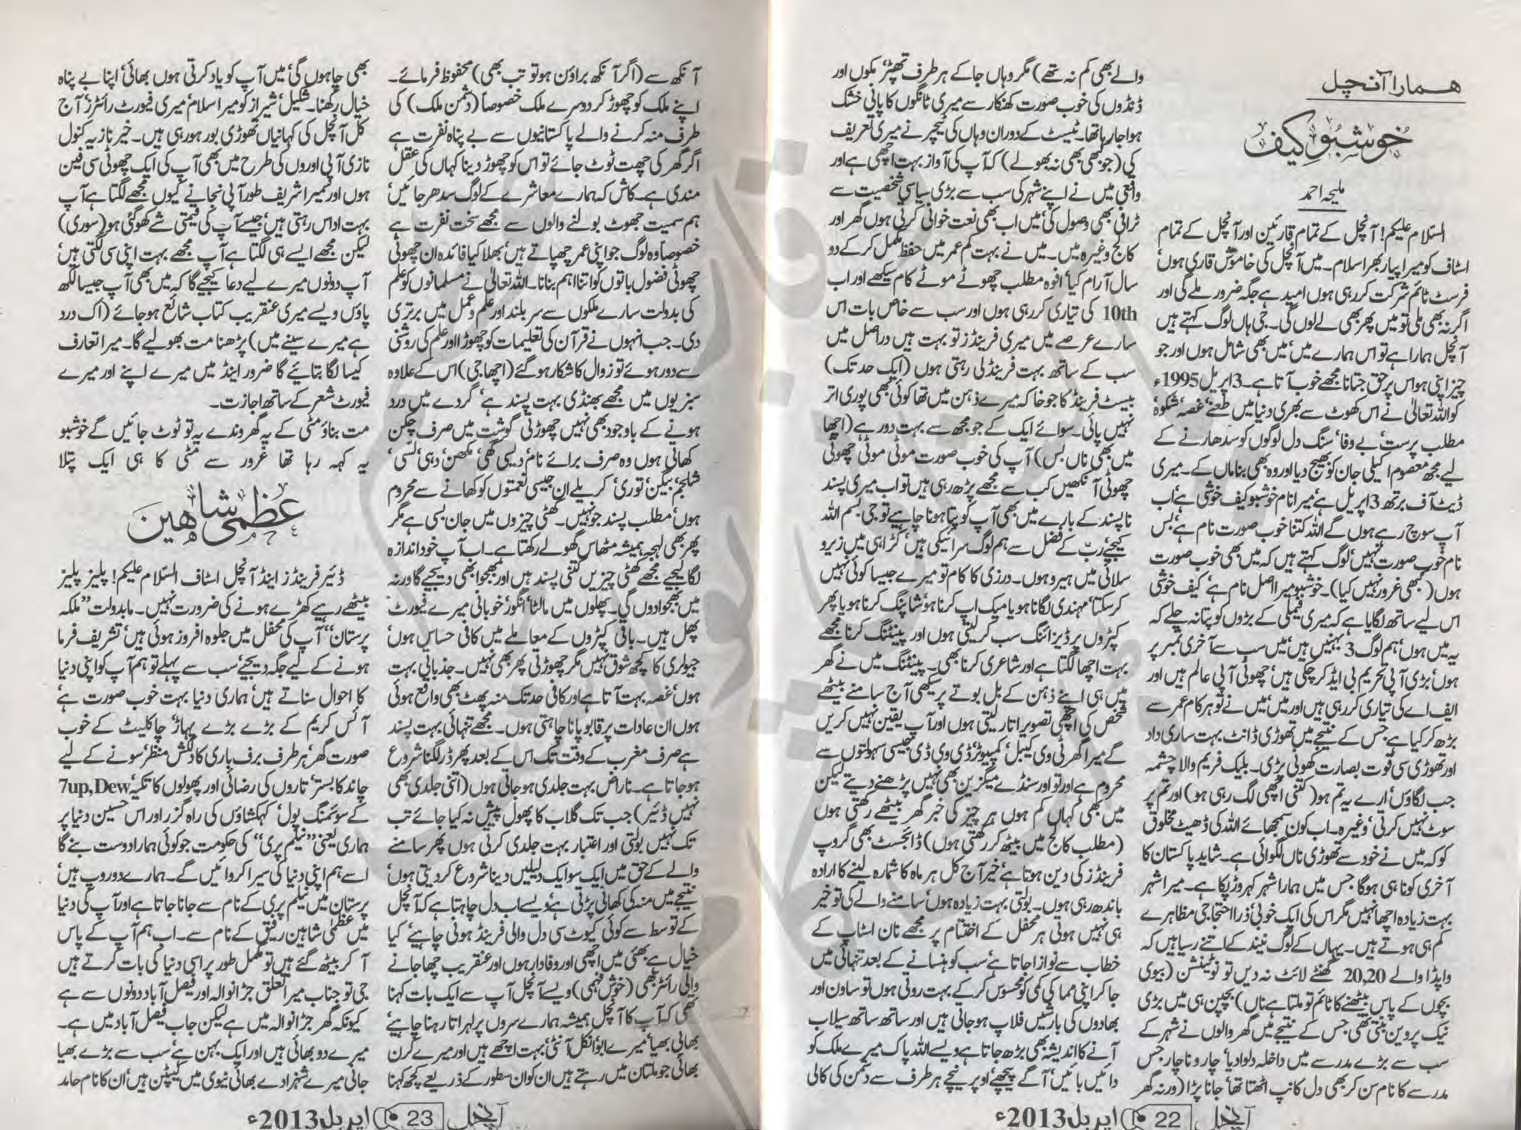 ہمارا آنچل
خوشبو کیف
ملیحہ احمد
السلام علیکم! آنچل کے تمام قارئین اور آنچل کے تمام
اسٹاف کو میرا پیار بھرا سلام۔ میں آنچل کی خاموش قاری ہوں‘
فرسٹ ٹائم شرکت کررہی ہوں امید ہے جگہ ضرور ملے گی اور
اگر نہ بھی ملی تو میں پھر بھی لے لوں گی۔ جی ہاں لوگ کہتے ہیں
آنچل ہمارا ہے تو اس ہمارے میں‘ میں بھی شامل ہوں اور جو
چیز اپنی ہو اس پر حق جتانا مجھے خوب آتا ہے۔ 3 اپریل 1995ء
کو اللہ تعالیٰ نے اس کھوٹ سے بھری دنیا میں طعنے‘ غصہ‘ شکوہ‘
مطلب پرست‘ بے وفا‘ سنگ دل لوگوں کو سدھارنے کے
لیے مجھ معصوم اکیلی جان کو بھیج دیا اور وہ بھی بنا ماں کے۔ میری
ڈیٹ آف برتھ 3 اپریل ہے میرا نام خوشبو کیف خوشی ہے‘ اب
آپ سوچ رہے ہوں گے اللہ کتنا خوب صورت نام ہے‘ بس
نام خوب صورت نہیں‘ لوگ کہتے ہیں کہ میں بھی خوب صورت
ہوں (کبھی غرور نہیں کیا)۔ خوشبو میرا اصل نام ہے‘ کیف خوشی
اس لیے ساتھ لگایا ہے کہ میری فیملی کے بڑوں کو پتا نہ چلے کہ
یہ میں ہوں‘ ہم لوگ 3 بہنیں ہیں‘ میں سب سے آخری نمبر پر
ہوں‘ بڑی آپی تحریم بی ایڈ کرچکی ہیں‘ چھوٹی آپی عالم ہیں اور
ایف اے کی تیاری کررہی ہیں اور میں‘ میں نے تو ہر کام عمر سے
بڑھ کر کیا ہے جس کے نتیجے میں تھوڑی ڈانٹ بہت ساری داد
اور تھوڑی سی قوت بصارت کھونی پڑی۔ بلیک فریم والا چشمہ
جب لگاؤں‘ ارے یہ تم ہو (کتنی اچھی لگ رہی ہو) اور تم پر
سوٹ نہیں کرتی‘ وغیرہ۔ اب کون سمجھائے اللہ کی ڈھیٹ مخلوق
کو کہ میں نے خود سے تھوڑی ناں لگوائی ہے۔ شاید پاکستان کا
آخری کونا ہی ہوگا جس میں ہمارا شہر کہروڑ پکا ہے۔ میرا شہر
بہت زیادہ اچھا نہیں مگر اس کی ایک خوبی‘ ذرا احتجاجی مظاہرے
کم ہی ہوتے ہیں۔ یہاں کے لوگ نیند کے اتنے رسیا ہیں کہ
واپڈا والے 20,20 گھنٹے لائٹ نہ دیں تو نو ٹینشن (بیوی
بچوں کے پاس بیٹھنے کا ٹائم تو ملتا ہے ناں) بچپن ہی میں بڑی
نیک پروین بنتی تھی جس کے نتیجے میں گھر والوں نے شہر کے
سب سے بڑے مدرسے میں داخلہ دلوا دیا‘ چاروناچار جس
مدرسے کا نام سن کر بھی دل کانپ اٹھتا تھا‘ جانا پڑا (ورنہ گھر
والے بھی کم نہ تھے) مگر وہاں جا کے ہر طرف تھپڑ‘ مکوں اور
ڈنڈوں کی خوب صورت کھنکار سے میری ٹانگوں کا پانی خشک
ہوا جا رہا تھا۔ ٹیسٹ کے دوران وہاں کی ٹیچر نے میری تعریف
کی (جو کبھی بھی نہ بھولے) کہ آپ کی آواز بہت اچھی ہے اور
واقعی میں نے اپنے شہر کی سب سے بڑی سیاسی شخصیت سے
ٹرافی بھی وصول کی‘ میں اب بھی نعت خوانی کرتی ہوں گھر اور
کالج وغیرہ میں۔ میں نے بہت کم عمر میں حفظ مکمل کرکے دو
سال آرام کیا‘ افوہ مطلب چھوٹے موٹے کام سیکھے اور اب
10th کی تیاری کررہی ہوں اور سب سے خاص بات اس
سارے عرصے میں میری فرینڈز تو بہت ہیں دراصل میں
سب کے ساتھ بہت فرینڈلی رہتی ہوں (ایک حد تک)
بیسٹ فرینڈ کا جو خاکہ میرے ذہن میں تھا کوئی بھی پوری اتر
نہیں پائی۔ سوائے ایک کے جو مجھ سے بہت دور ہے (اچھا
میں بھی ناں بس) آپ کی خوب صورت موٹی موٹی‘ چھوٹی
چھوٹی آنکھیں کب سے مجھے پڑھ رہی ہیں تو اب میری پسند
ناپسند کے بارے میں بھی آپ کو پتا ہونا چاہیے تو جی بسم اللہ
کیجیے‘ ربّ کے فضل سے ہم لوگ سرائیکی ہیں‘ کڑاہی میں زیرو
سلائی میں ہیرو ہوں۔ درزی کا کام تو میرے جیسا کوئی نہیں
کرسکتا‘ مہندی لگانا ہو یا میک اپ کرنا ہو‘ شاپنگ کرنا ہو یا پھر
کپڑوں پر ڈیزائنگ سب کرلیتی ہوں اور پینٹنگ کرنا مجھے
بہت اچھا لگتا ہے اور شاعری کرنا بھی۔ پینٹنگ میں نے گھر
میں ہی اپنے ذہن کے بل بوتے پر سیکھی آج سامنے بیٹھے
شخص کی اچھی تصویر اتار لیتی ہوں اور آپ یقین نہیں کریں
گے میرا گھر ٹی وی کیبل‘ کمپیوٹر‘ ڈی وی ڈی جیسی سہولتوں سے
محروم ہے اور تو اور سنڈے میگزین بھی نہیں پڑھنے دیتے لیکن
میں بھی کہاں کم ہوں ہر چیز کی خبر گھر بیٹھے رکھتی ہوں
(مطلب کالج میں بیٹھ کر رکھتی ہوں) ڈائجسٹ بھی گروپ
فرینڈز کی دین ہوتا ہے‘ خیر آج کل ہر ماہ کا شمارہ لینے کا ارادہ
باندھ رہی ہوں۔ بولتی بہت زیادہ ہوں‘ سامنے والے کی تو خیر
ہی نہیں ہوتی ہر محفل کے اختتام پر مجھے نان اسٹاپ کے
خطاب سے نوازا جاتا ہے‘ سب کو ہنسانے کے بعد تنہائی میں
جا کر اپنی مما کی کمی کو محسوس کرکے بہت روتی ہوں تو ساون اور
بھادوں کی بارشیں فلاپ ہوجاتی ہیں اور ساتھ ساتھ سیلاب
آنے کا اندیشہ بھی بڑھ جاتا ہے ویسے اللہ پاک میرے ملک کو
دائیں بائیں‘ آگے پیچھے‘ اوپر نیچے ہر طرف سے دشمن کی کالی
آنچل 22 اپریل 2013ء
آنکھ سے (اگر آنکھ براؤن ہو تو تب بھی) محفوظ فرمائے۔
اپنے ملک کو چھوڑ کر دوسرے ملک خصوصاً (دشمن ملک) کی
طرف منہ کرنے والے پاکستانیوں سے بے پناہ نفرت ہے
اگر گھر کی چھت ٹوٹ جائے تو اس کو چھوڑ دینا کہاں کی عقل
مندی ہے۔ کاش کہ ہمارے معاشرے کے لوگ سدھر جائیں‘
ہم سمیت جھوٹ بولنے والوں سے مجھے سخت نفرت ہے
خصوصاً وہ لوگ جو اپنی عمر چھپاتے ہیں‘ بھلا کیا فائدہ ان چھوٹی
چھوٹی فضول باتوں کو اتنا اہم بنانا۔ اللہ تعالیٰ نے مسلمانوں کو علم
کی بدولت سارے ملکوں سے سربلند اور علم و عمل میں برتری
دی۔ جب انہوں نے قرآن کی تعلیمات کو چھوڑا اور علم کی روشنی
سے دور ہوئے تو زوال کا شکار ہوگئے (اچھا جی) اس کے علاوہ
سبزیوں میں مجھے بھنڈی بہت پسند ہے‘ گردے میں درد
ہونے کے باوجود بھی نہیں چھوڑتی‘ گوشت میں صرف چکن
کھاتی ہوں وہ صرف برائے نام‘ دیسی گھی‘ مکھن‘ دہی‘ لسی‘
شلجم‘ بینگن‘ توری‘ کریلے ان جیسی نعمتوں کو کھانے سے محروم
ہوں‘ مطلب پسند جو نہیں۔ کھٹی چیزوں میں جان بسی ہے مگر
پھر بھی لہجہ ہمیشہ مٹھاس گھولے رکھتا ہے۔ اب آپ خود اندازہ
لگا لیجیے مجھے کھٹی چیزیں کتنی پسند ہیں اور بھجوا بھی دیجیے گا ورنہ
میں بھجوا دوں گی۔ پھلوں میں مالٹا‘ انگور‘ خوبانی میرے فیورٹ
پھل ہیں۔ باقی کپڑوں کے معاملے میں کافی حساس ہوں‘
جیولری کا کچھ شوق نہیں مگر چھوڑتی پھر بھی نہیں۔ جذباتی بہت
ہوں‘ غصہ بہت آتا ہے اور کافی حد تک منہ پھٹ بھی واقع ہوئی
ہوں ان عادات پر قابو پانا چاہتی ہوں۔ مجھے تنہائی بہت پسند
ہے صرف مغرب کے وقت تک اس کے بعد پھر ڈر لگنا شروع
ہوجاتا ہے۔ ناراض بہت جلدی ہوجاتی ہوں (اتنی جلدی بھی
نہیں ڈئیر) جب تک گلاب کا پھول پیش نہ کیا جائے تب
تک نہیں بولتی اور اعتبار بہت جلدی کرتی ہوں پھر سامنے
والے کے حق میں ایک سو ایک دلیلیں دینا شروع کردیتی ہوں‘
نتیجے میں منہ کی کھانی پڑتی ہے‘ ویسے اب دل چاہتا ہے کہ آنچل
کے توسط سے کوئی کیوٹ سی دل والی فرینڈ ہونی چاہیے‘ کیا
خیال ہے بھئی میں اچھی اور وفادار ہوں اور عنقریب چھا جانے
والی رائٹر بھی (خوش فہمی) ویسے آنچل آپ سے ایک بات کہنا
تھی کہ آپ کا آنچل ہمیشہ ہمارے سروں پر لہراتا رہنا چاہیے‘
بھائی بھیا‘ میرے ابو‘ انکل آنٹی‘ بہت اچھے ہیں اور میرے کزن
بھائی جو ملتان میں رہتے ہیں ان کو ان سطور کے ذریعے کچھ کہنا
بھی چاہوں گی‘ میں آپ کو یاد کرتی ہوں بھائی‘ اپنا بے پناہ
خیال رکھنا۔ شکیل‘ شیراز کو میرا سلام‘ میری فیورٹ رائٹرز‘ آج
کل آنچل کی کہانیاں تھوڑی بور ہورہی ہیں۔ خیر نازیہ کنول
نازی آپی اوروں کی طرح میں بھی آپ کی ایک چھوٹی سی فین
ہوں اور سمیرا شریف طور آپی نجانے کیوں مجھے لگتا ہے آپ
بہت اداس رہتی ہیں‘ جیسے آپ کی قیمتی شے کھوگئی ہو (سوری)
لیکن مجھے ایسے ہی لگتا ہے آپ مجھے بہت اپنی سی لگتی ہیں‘
آپ دونوں میرے لیے دعا کیجیے گا کہ میں بھی آپ جیسا لکھ
پاؤں ویسے میری عنقریب کتاب شائع ہوجائے (اک درد
ہے میرے سینے میں) پڑھنا مت بھولیے گا۔ میرا تعارف
کیسا لگا بتائیے گا ضرور اینڈ میں میرے اپنے اور میرے
فیورٹ شعر کے ساتھ اجازت۔
مت بناؤ مٹی کے یہ گھروندے یہ تو ٹوٹ جائیں گے خوشبو
یہ کہہ رہا تھا غرور سے مٹی کا ہی ایک پتلا
عظمیٰ شاہین
ڈئیر فرینڈز اینڈ آنچل اسٹاف السلام علیکم! پلیز پلیز
بیٹھے رہیے کھڑے ہونے کی ضرورت نہیں۔ مابدولت ”ملکہ
پرستان“ آپ کی محفل میں جلوہ افروز ہوئی ہیں‘ تشریف فرما
ہونے کے لیے جگہ دیجیے‘ سب سے پہلے تو ہم آپ کو اپنی دنیا
کا احوال سناتے ہیں‘ ہماری دنیا بہت خوب صورت ہے‘
آئس کریم کے بڑے بڑے پہاڑ‘ چاکلیٹ کے خوب
صورت گھر‘ ہر طرف برف باری کا دلکش منظر‘ سونے کے لیے
چاند کا بستر‘ تاروں کی رضائی اور پھولوں کا تکیہ‘ 7up, Dew
کے سوئمنگ پول‘ کہکشاؤں کی راہ گزر اور اس حسین دنیا پر
ہماری یعنی ”نیلم پری“ کی حکومت جو کوئی ہمارا دوست بنے گا
اسے ہم اپنی دنیا کی سیر کروائیں گے۔ ہمارے دو روپ ہیں‘
پرستان میں نیلم پری کے نام سے جانا جاتا ہے اور آپ کی دنیا
میں عظمیٰ شاہین رفیق کے نام سے۔ اب ہم آپ کے پاس
آ کر بیٹھ گئے ہیں تو مکمل طور پر اسی دنیا کی بات کرتے ہیں
جی تو جناب میرا تعلق جڑانوالہ اور فیصل آباد دونوں سے ہے
کیونکہ گھر جڑانوالہ میں ہے لیکن جاب فیصل آباد میں ہے۔
میرے دو بھائی ہیں اور ایک بہن ہے‘ سب سے بڑے بھیا
جانی میرے شہزادے بھائی نیوی میں کیپٹن ہیں‘ ان کا نام حامد
آنچل 23 اپریل 2013ء